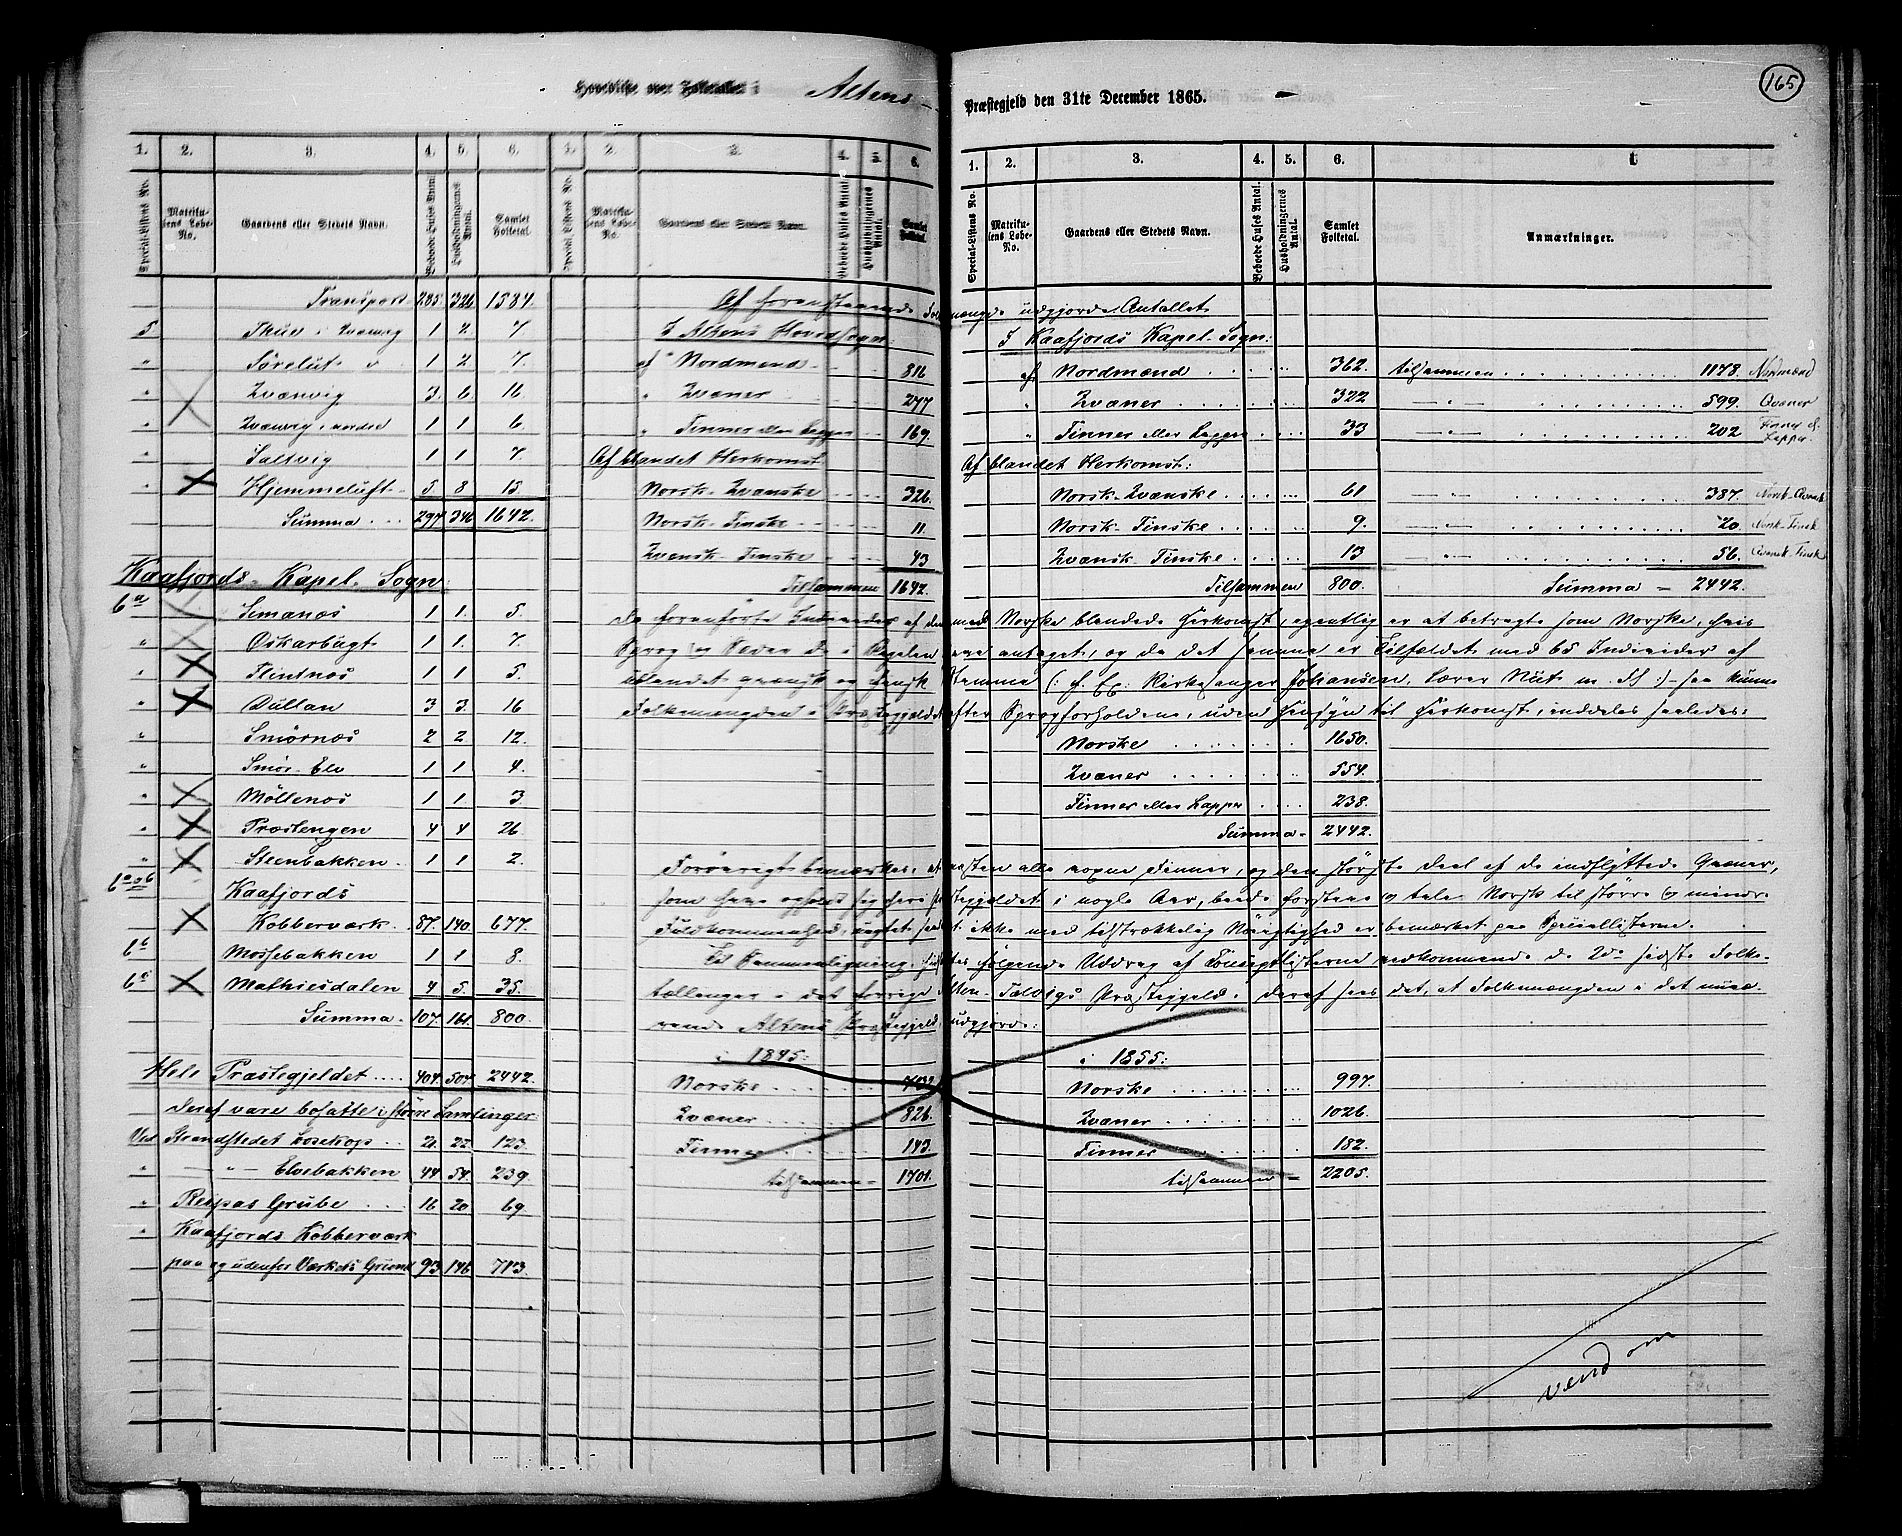 Altens
Præstegjeld den 31te December 1865.
165
1. 2. 3. 4. 5. 6. 1. 2. 3. 4. 5. 6.
Special-Listens No. Matrikulens Løbe-No. Gaardens eller Stedets Navn. Beboede Huses Antal. Husholdningernes Antal. Samlet Folketal.
Transport 285. 326. 1584.
5 Thue i Qvænvig 1 2. 7.
" Søreluft 1 2 7.
" Qvænvig 3. 6. 16
" Qvænvig, nordre 1 1 6.
" Saltvig 1 1 7.
" Hjemmeluft 5 8 15
Summa 297. 346 1642.
Kaafjords Kapel-Sogn
6a Simanæs 1 1. 5.
" Oskarbugt 1 1. 7.
" Flintnæs 1 1 5.
" Aullan 3 3. 16
" Smørnæs 2 2 12.
" Smør-Elv 1 1 4.
" Møllenæs 1 1 3
" Præstengen 4 4 26
" Steenbakken 1 1 2.
6a og b Kaafjords
Kobberværk 87. 140. 677.
6b Mossebakken 1 1 8.
6c Mathiesdalen 4 5. 35.
Summa 107. 161. 800.
Hele Præstegjeldet 404. 507. 2442.
Deraf vare bosatte i større Samlinger:
Ved Strandstedet Bosekop 21. 22. 123
" " Elvebakken 44 54. 239.
" Reipas Grube 16 20 69.
" Kaafjords Kobberværk
paa og udenfor Værkets Grund 93 146 713.
Af foranstaaende Folkemængde udgjorde Antallet
I Altens Hovedsogn:
af Nordmænd 816
" Qvæner 277
" Finner eller Lapper 169.
Af blandet Herkomst
Norsk-Qvænske 326.
Norsk-Finske 11.
Qvænsk-Finske 43
Tilsammen 1642.
1. 2. 3. 4. 5. 6.
Special-Listens No. Matrikulens Løbe-No. Gaardens eller Stedets Navn. Beboede Huses Antal. Husholdningernes Antal. Samlet Folketal. Anmærkninger.
I Kaafjords Kapel-Sogn:
af Nordmænd 362. tilsammen 1178. Nordmænd
" Qvæner 322 " 599. Qvæner
" Finner eller Lapper 33 " 202 Finner el. Lapper.
Af blandet Herkomst:
Norsk-Qvænske 61 " 387. Norsk-Qvænsk
Norsk-Finske 9. " 20. Norsk-Finsk
Qvænsk-Finske 13 " 56. Qvænsk-Finsk
Tilsammen 800. Summa = 2442.
De foranførte Individer af den med Norske blandede Herkomst, egentlig er at betragte som Norske, hvis
Sprog og Sæder de i Regelen have antaget, og da det samme er Tilfældet med 65 Individer af
ublandet qvænsk og finsk Stamme (: f. Ex: Kirkesanger Johansen, Lærer m. fl :) saa kunne
Folkemængden i Præstegjeldet efter Sprogforholdene, uden Hensyn til Herkomst, inddeles saaledes:
Norske 1650.
Qvæner 554.
Finner eller Lapper 238.
Summa = 2442.
Forøvrigt bemærkes, at næsten alle voxne Finner, og den største Deel af de indflyttede Qvæner,
som have opholdt sig her i Præstegjeldet i nogle Aar, baade forstaae og tale Norsk til større og mindre
Fuldkommenhed, uagtet ikke med tilstrækkelig Nøiagtighed er bemærket paa Speciallisterne.
Til Sammenligning, hidsættes følgende Uddrag af vedkommende de 2de sidste Folke-
tællinger i det forrige Alten-Talvigs Præstegjeld. Deraf sees det, at Folkemængden i det nuvæ-
rende Altens Præstegjeld udgjorde:
i 1845:
Norske 732
Qvæner 826.
Finner 143.
tilsammen = 1701.
i 1855:
Norske 997.
Qvæner 1026.
Finner 182.
tilsammen = 2205.
vend om